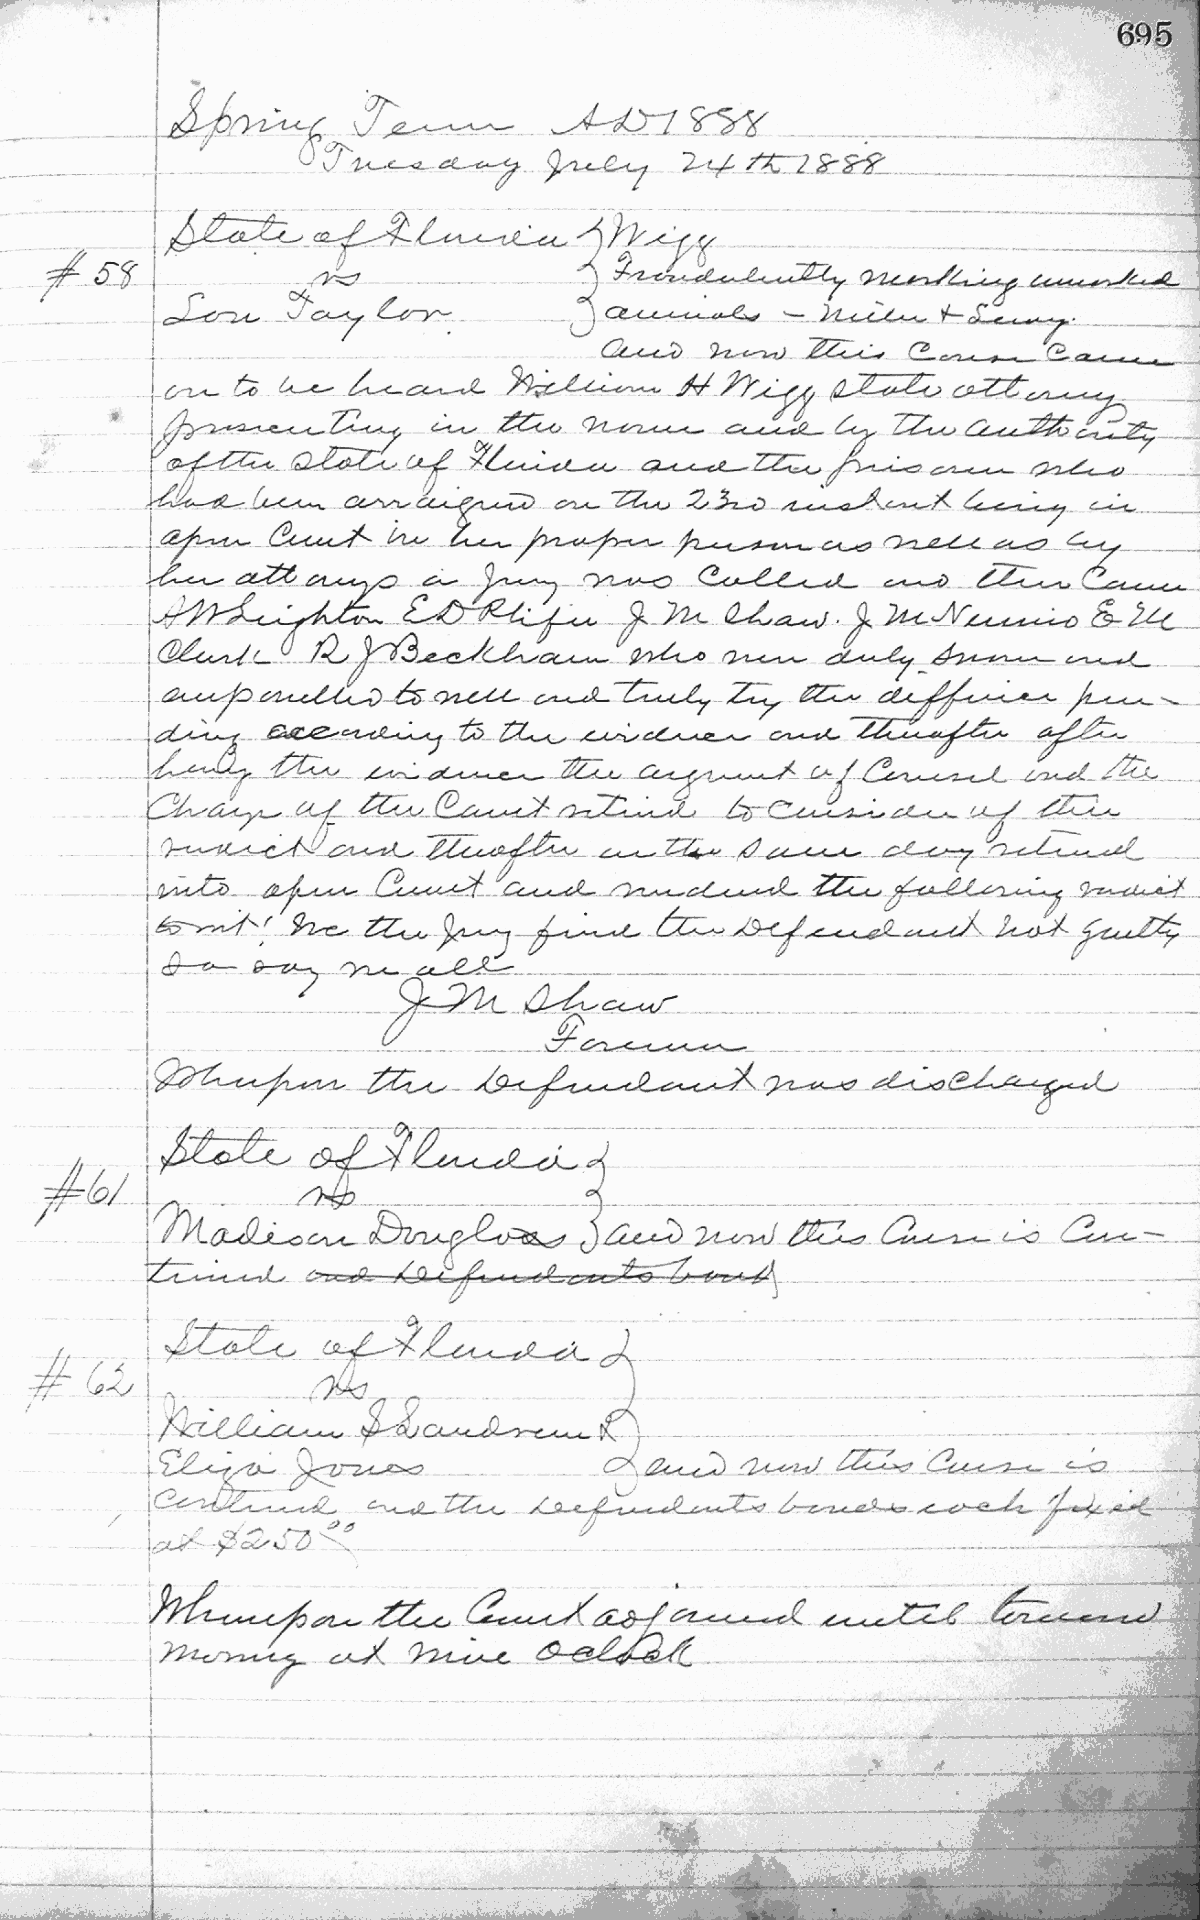 695
Spring Term AD 1888
Tuesday July 24th 1888
State of Florida } Wigg
# 58 vs } Fraudulently marking unmarked
Lou Taylor } animals - Miller &
and now this Cause Came
on to be heard William H Wigg state attorney
prosecuting in the name and by the authority
of the State of Florida and the prisoner who
had been arraigned on the 23rd instant being in
open Court in her proper person as well as by
her attorneys a Jury was Called and then Came
A W Leighton E D J M Shaw. J M E M
Clark R J Beckham who were duly sworn and
empanelled to well and truly try the difference pen-
ding according to the evidence and thereafter after
hearing the evidence the argument of Counsel and the
Charge of the Court retired to Consider of their
verdict and thereafter on the same day returned
into open Court and rendered the following verdict
to wit! We the Jury find the Defendant not guilty
so say we all
J M Shaw
Foreman
Whereupon the Defendant was discharged
State of Florida }
#61 vs }
Madison Douglass } and now this Cause is Con-
tinued and Defendants bond
State of Florida }
# 62 vs
William S Landrum & }
Eliza Jones } and now this Cause is
Continued and the Defendants bonds each fixed
at $250.00
Whereupon the Court adjourned until tomorrow
morning at nine Oclock